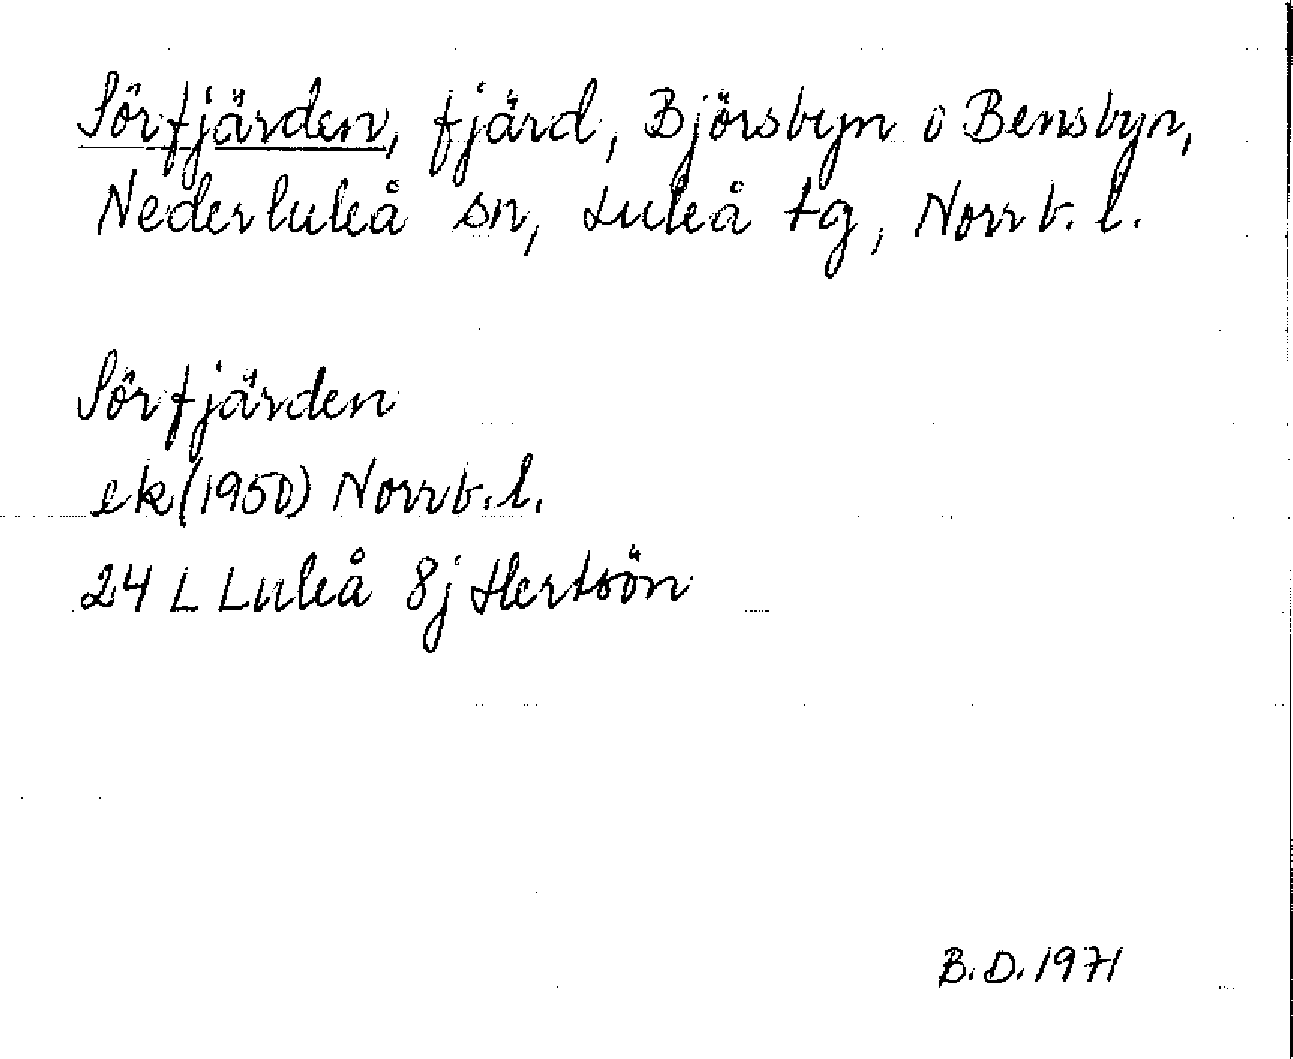 Sörfjärden, fjärd, Björsbyn o Bensbyn,
Nederluleå sn, Luleå tg, Norrb. l.
Sörfjärden
ek (1950) Norrb. l.
24 L Luleå 8j Hertsön
B. D. 1971